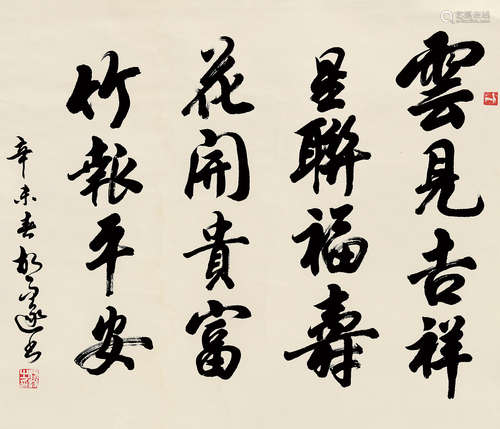 雲見吉祥
星聯福壽
花開貴富
竹報平安
辛未春胡㧑遂书